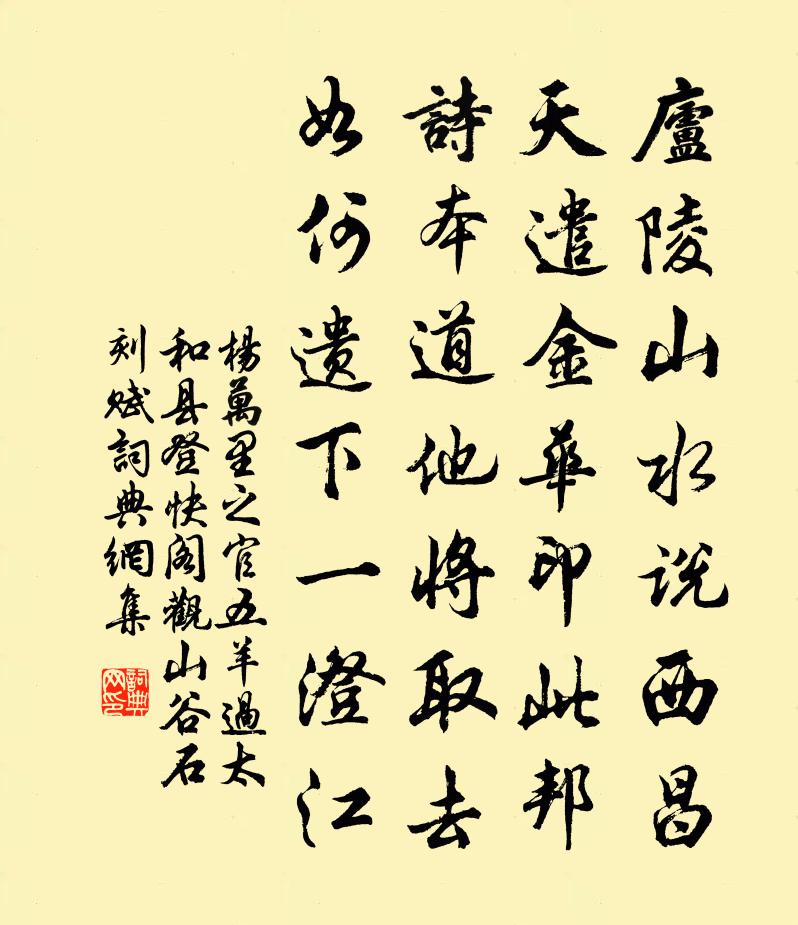 廬陵山水說西昌
天遣金華印此邦
詩本道他將取去
如何遺下一澄江
楊萬里之官五羊過太
和县登快阁觀山谷石
刻賦詞典網集
詞典网印